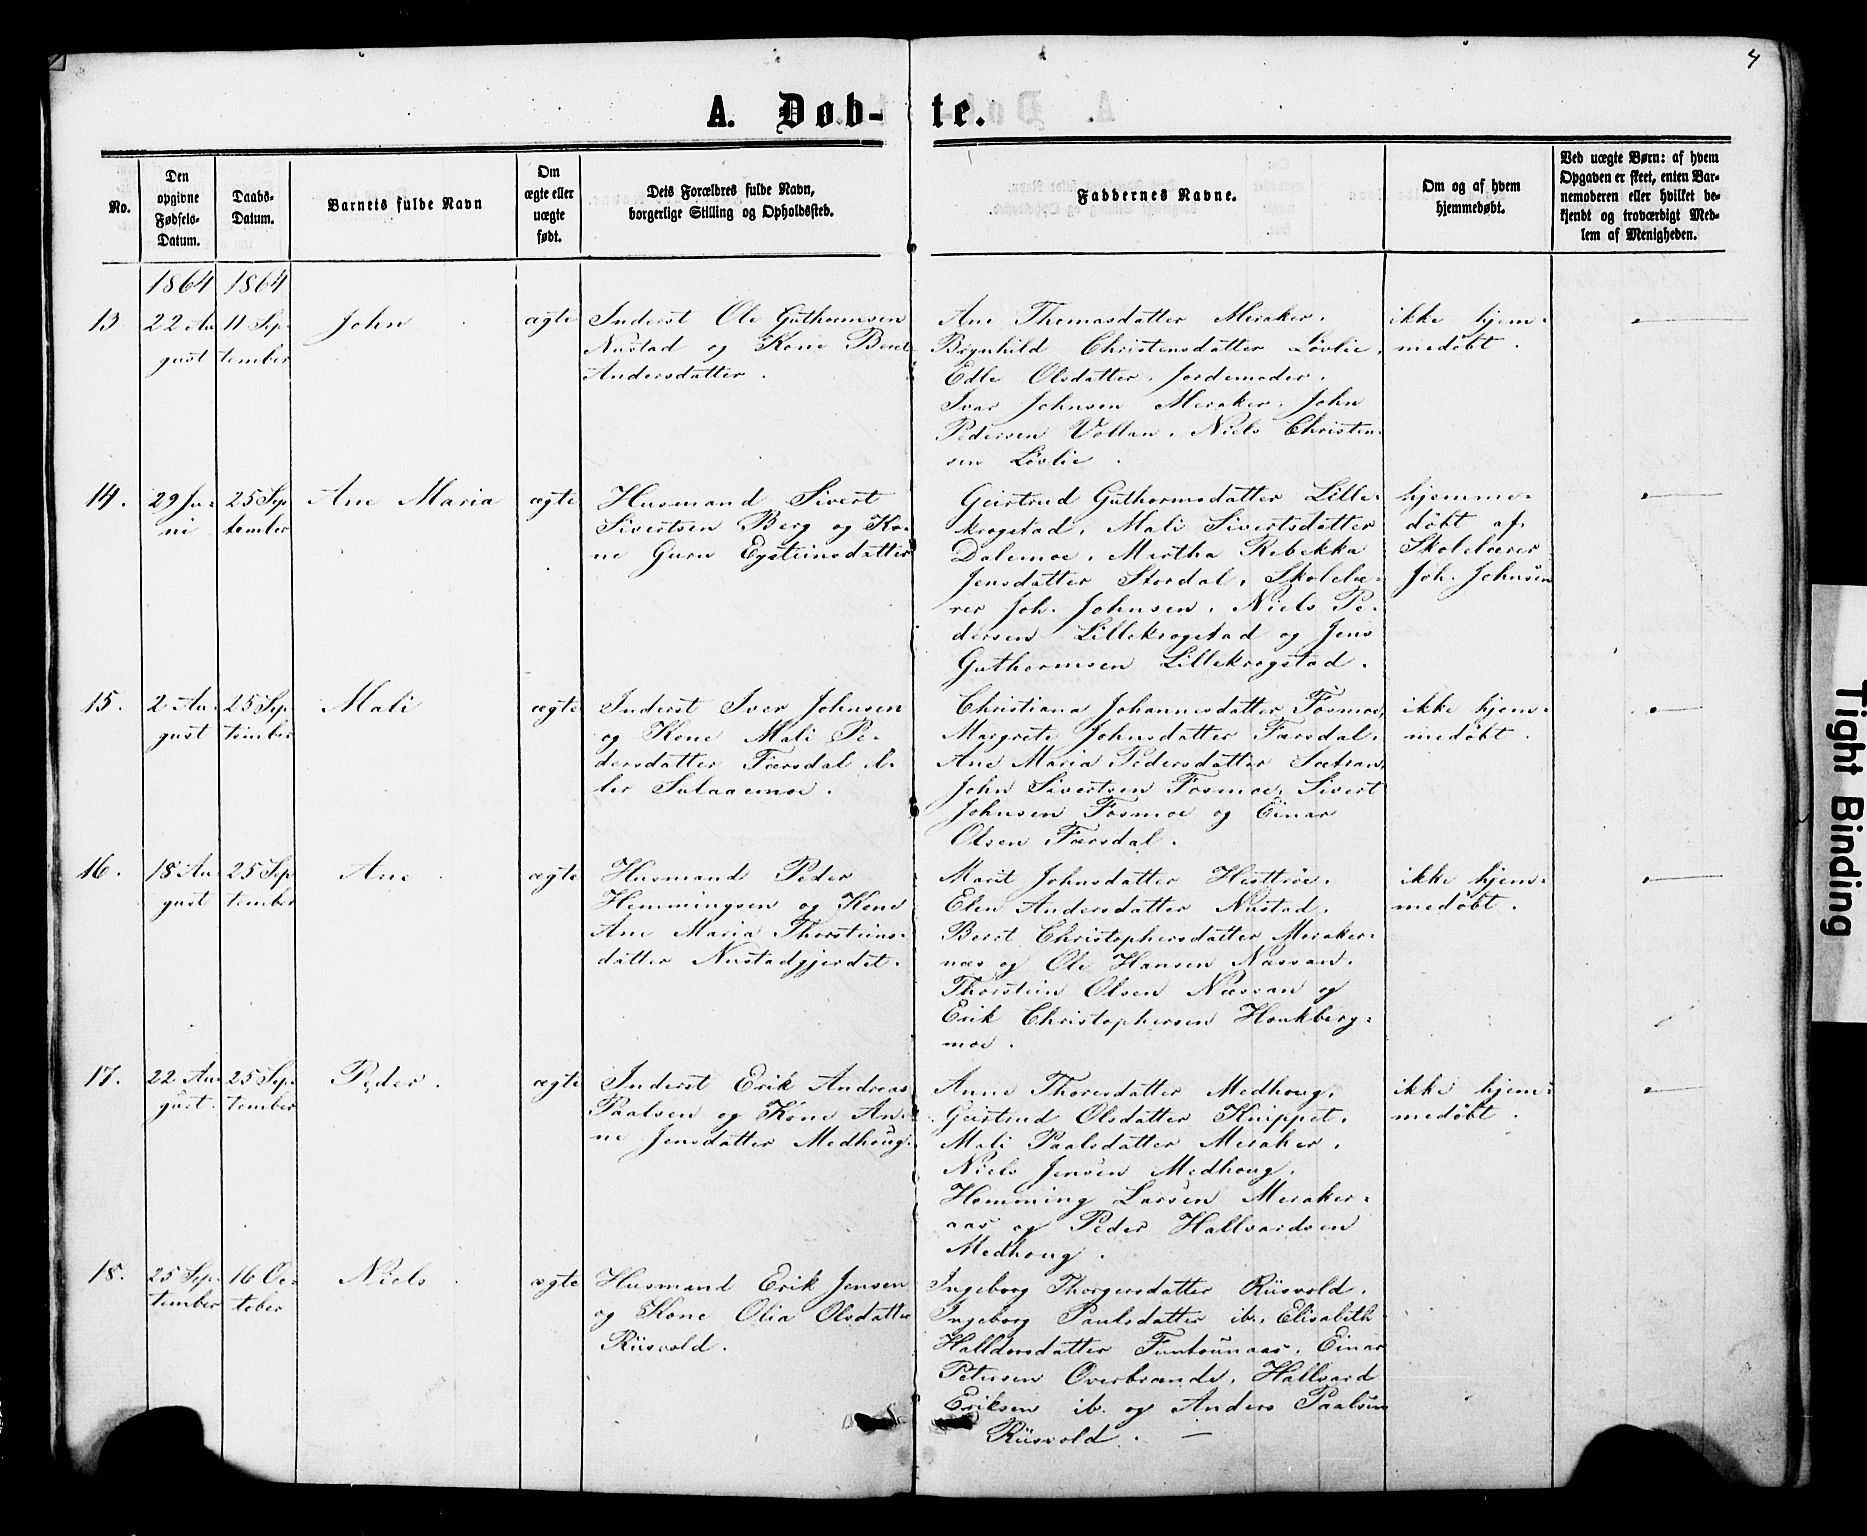 4
A. Døb- te.
No.
Den opgivne Fødsels-Datum.
Daabs-Datum.
Barnets fulde Navn
Om ægte eller uægte født.
Dets Forældres fulde Navn, borgerlige Stilling og Opholdssted.
Faddernes Navne.
Om og af hvem hjemmedøbt.
Ved uægte Børn: af hvem Opgaven er skeet, enten Barnemoderen eller hvilket bekjendt og troværdigt Medlem af Menigheden.
1864 1864
13
22 Au-
gust
11 Sep-
tember
John
ægte
Inderst Ole Guthormsen
Nustad og Kone Beret
Andersdatter.
Ane Thomasdatter Meraker.
Brynhild Christensdatter Løvlie.
Edle Olsdatter. Jordemoder.
Ivar Johnsen Meraker. John
Pedersen Vollan. Niels Christen-
sen Løvlie.
ikke hjem-
medøbt.
14.
29 Ju-
ni
25 Sep
tember
Ane Maria
ægte
Husmand Sivert
Sivertsen Berg og Ko-
ne Guru Eysteinsdatter
Geirtrud Guthormsdatter Lille-
krogstad. Mali Sivertsdatter
Dalemoe. Mertha Rebekka
Jensdatter Stordal. Skolelæ-
rer Joh. Johnsen. Niels Pe-
dersen Lillekrogstad og Jens
Guthormsen Lillekrogstad.
hjemme-
døbt af
Skolelærer
Joh. Johnsen
15.
2 Au-
gust
25 Sep
tember
Mali
ægte
Inderst Iver Johnsen
og Kone Mali Pe-
dersdatter Færsdal el-
ler Sulaaemoe.
Christiana Johannesdatter Fosmoe,
Margrete Johnsdatter Færsdal.
Ane Maria Pedersdatter Sætran,
John Sivertsen Fosmoe. Sivert
Johnsen Fosmoe og Einar
Olsen Færsdal.
ikke hjem-
medøbt.
16.
18 Au-
gust
25 Sep
tember
Ane
ægte
Husmand Peder
Hemmingsen og Kone
Ane Maria Thorsteins-
datter Nustadgjerdet.
Marit Johnsdatter Hesttrøe.
Elen Andersdatter Nustad.
Berit Christophersdatter Meraker-
næs og Ole Hansen Næssan.
Thorstein Olsen Næssan og
Erik Christophersen Houkberg-
moe.
ikke hjem-
medøbt.
17.
22 Au-
gust.
25 Sep-
tember
Peder.
ægte
Inderst Erik Andreas
Paalsen og Kone An-
ne Jensdatter Medhoug.
Anne Thoresdatter Medhoug.
Geirtrud Olsdatter Knippet.
Mali Paalsdatter Meraker.
Niels Jensen Medhoug.
Hemming Larsen Meraker-
aas og Peder Hallvardsen
Medhoug.
ikke hjem-
medøbt.
18.
25 Sep-
tember
16 Oc-
tober
Niels
ægte
Husmand Erik Jensen
og Kone Olia Olsdatter
Riisvold.
Ingeborg Thorgersdatter Riisvold.
Ingeborg Paulsdatter ib. Elisabeth
Halldorsdatter Funtounaas. Einar
Petersen Overbrænde. Hallvard
Eriksen ib. og Anders Paalsen
Riisvold.
Tight Binding